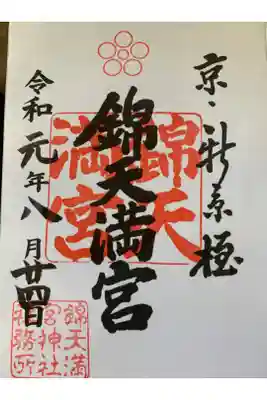 京・新京極
錦天満宮
令和元年八月廿四日
錦天
満宮
錦天満
宮神社
社務所